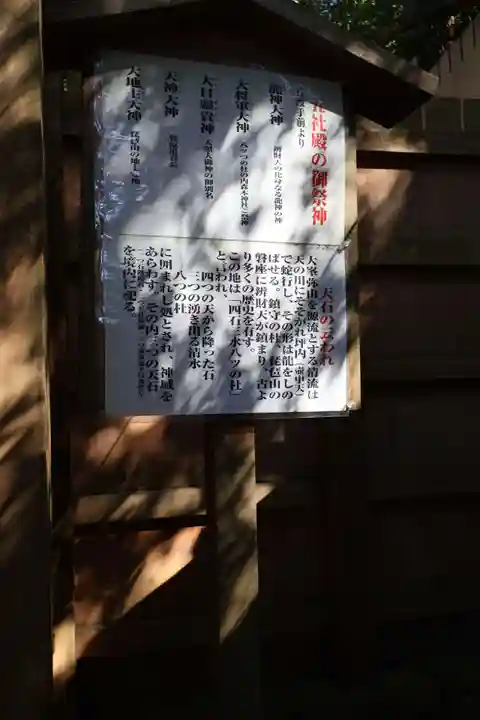 五社殿の御祭神
右手前より
龍神大神
辨財天の化身なる龍神の神
大将軍大神
八ツの杜の内森本神社に祭神
大日孁貴神
天照大御神の御別名
天神大神
大地主大神
琵琶山の地主大神
天石の云われ
大峯弥山を源流とする清流は
天の川にそそがれ坪内(壷中天)
で蛇行し、その形は龍をしの
ばせる。鎮守の杜、琵琶山の
磐座に辨財天が鎮まり、古よ
り多くの歴史を有す。
この地は「四石三水八ツの杜」
と言われ、
四つの天から降った石
三つの湧き出る清水
八つの杜
に囲まれし処とされ、神域を
あらわす。その内三つの天石
を境内に祀る。